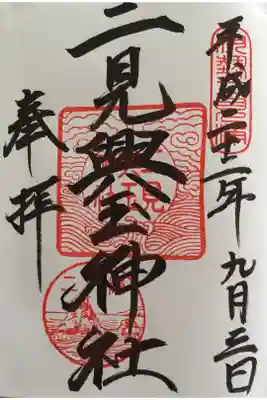 平成二十二年九月三日
二見興玉神社
奉拝